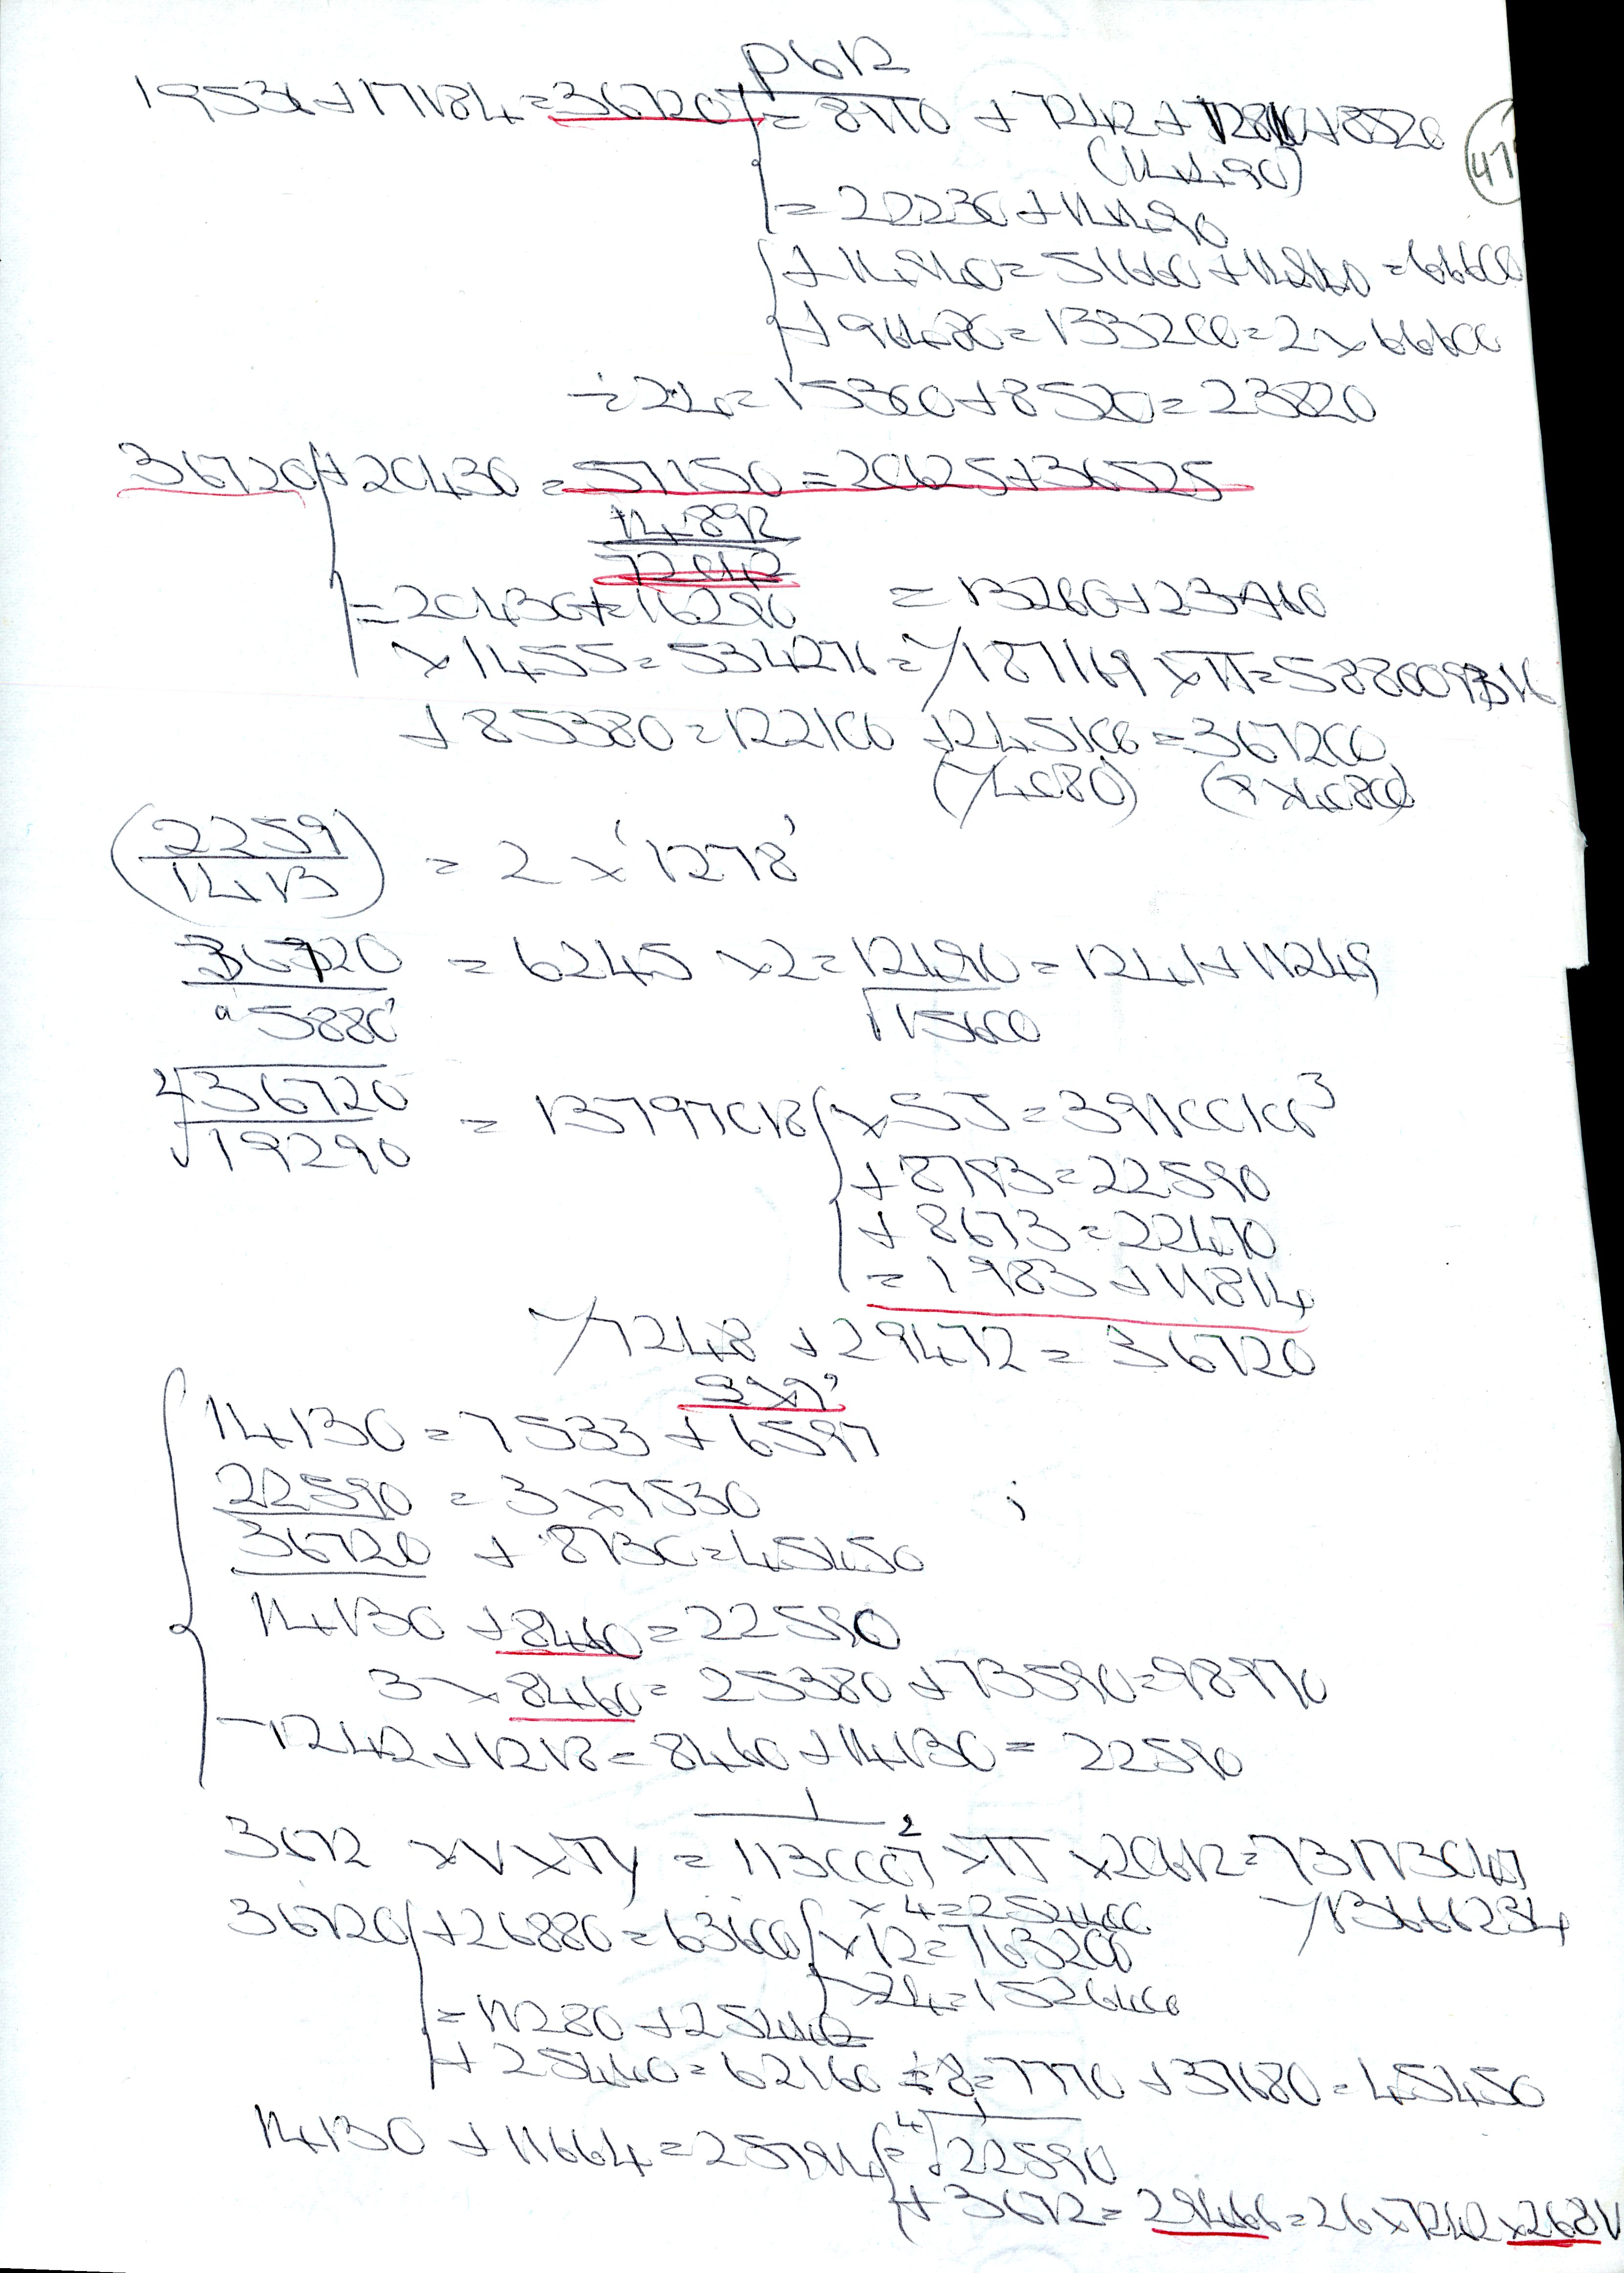 p612
19536+17184=36720 = 8770 + 7242+12810+8520
(14490)
= 22230+14490
+14940=51660+14940=66600
+96480=133200=2×66600
÷24=15300+8520=23820
36720 +20430=57150=20625+36525
14892
72042
=20430+16290 = 13260+23460
×1455=534276=√187169 ×π=588009
+85380=122100 +245100=367200
(√4080) (9×4080)
(2259/1413) = 2×'1278'
36720/"5880" = 6245 ×2=12490=1241+11249
√15600
4√36720/√19290 = 13797018 ×55=3910010
+8793=22590
+8673=22470
=1983+11814
√7248 +29472=36720
14130=7533+6597
22590 = 3×7530
36720 + 8730=45450
14130 +8460=22590
3×8460=25380+73590=98970
7242+1218=8460+14130=22590
3672 = 113000
36720 +26880=63600 ×4=254400
×12=763200
×24=1526400
=11280+25440
+25440=62160 ÷8=7770 +37680=45450
14130 +11664=25794 = 4√22590
+3672=29466=26×7242